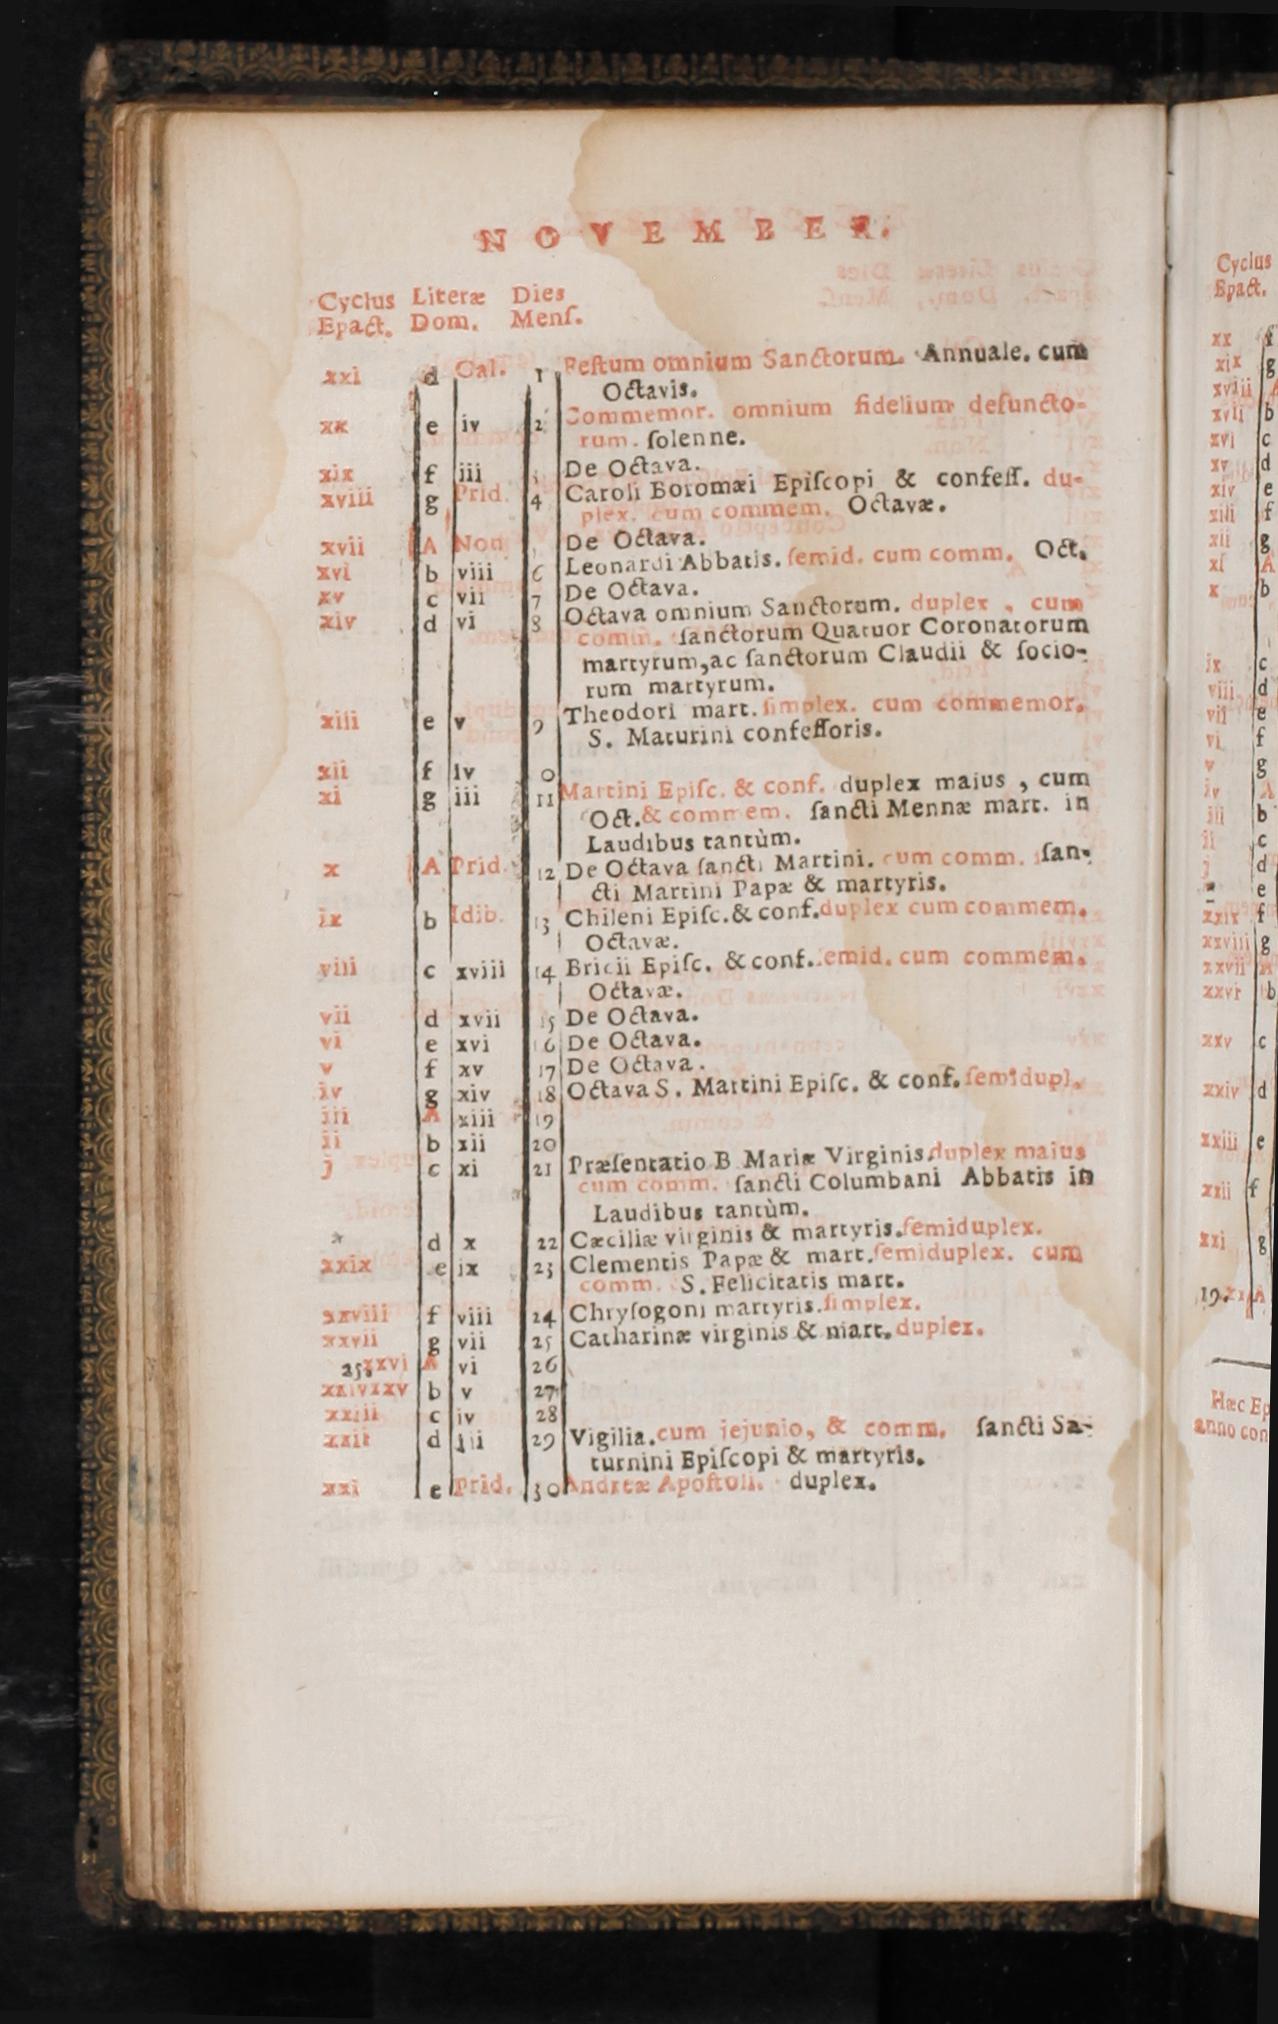 NOVEMBER.
Cyclus Literæ Dies
Epact. Dom. Menſ.
xxi d Cal. 1 Feſtum omnium Sanctorum. Annuale. cum
Octavis.
xx e iv 2 Commemor. omnium fidelium defuncto-
rum. ſolenne.
xix f iii 3 De Octava.
xviii g Prid. 4 Caroli Boromæi Epiſcopi & confeſſ. du-
plex. cum commem. Octavæ.
xvii A Non De Octava.
xvi b viii 6 Leonardi Abbatis. ſemid. cum comm. Oct.
xv c vii 7 De Octava.
xiv d vi 8 Octava omnium Sanctorum. duplex , cum
comm. ſanctorum Quatuor Coronatorum
martyrum,ac ſanctorum Claudii & ſocio-
rum martyrum.
xiii e v 9 Theodori mart. ſimplex. cum commemor.
S. Maturini confeſſoris.
xii f iv 0
xi g iii 11 Martini Epiſc. & conf. duplex maius , cum
Oct.& commem. ſancti Mennæ mart. in
Laudibus tantùm.
x A Prid. 12 De Octava ſancti Martini. cum comm. ſan-
cti Martini Papæ & martyris.
ix b Idib. 13 Chileni Epiſc.& conf.duplex cum commem.
Octavæ.
viii c xviii 14 Bricii Epiſc. & conf. ſemid. cum commem.
Octavæ.
vii d xvii 15 De Octava.
vi e xvi 16 De Octava.
v f xv 17 De Octava.
iv g xiv 18 Octava S. Martini Epiſc. & conf. ſemidupl.
iii A xiii 19
ii b xii 20
j c xi 21 Præſentatio B Mariæ Virginis.duplex maius
cum comm. ſancti Columbani Abbatis in
Laudibus tantùm.
* d x 22 Cæciliæ virginis & martyris.ſemiduplex.
xxix e ix 23 Clementis Papæ & mart.ſemiduplex. cum
comm. S. Felicitatis mart.
xxviii f viii 24 Chryſogoni martyris.ſimplex.
xxvii g vii 25 Catharinæ virginis & mart.duplex.
25.xxvi A vi 26
xxivxxv b v 27
xxiii c iv 28
xxii d iii 29 Vigilia.cum jejunio, & comm. ſancti Sa-
turnini Epiſcopi & martyris.
xxi e Prid. 30 Andreæ Apoſtoli. duplex.
Cyclus
Epact.
xx f
xix g
xviii A
xvii b
xvi c
xv d
xiv e
xiii f
xii g
xi A
x b
ix c
viii d
vii e
vi f
v g
iv A
iii b
ii c
j d
* e
xxix f
xxviii g
xxvii A
xxvi b
xxv c
xxiv d
xxiii e
xxii f
xxi g
19. A
Hæc Ep
anno con